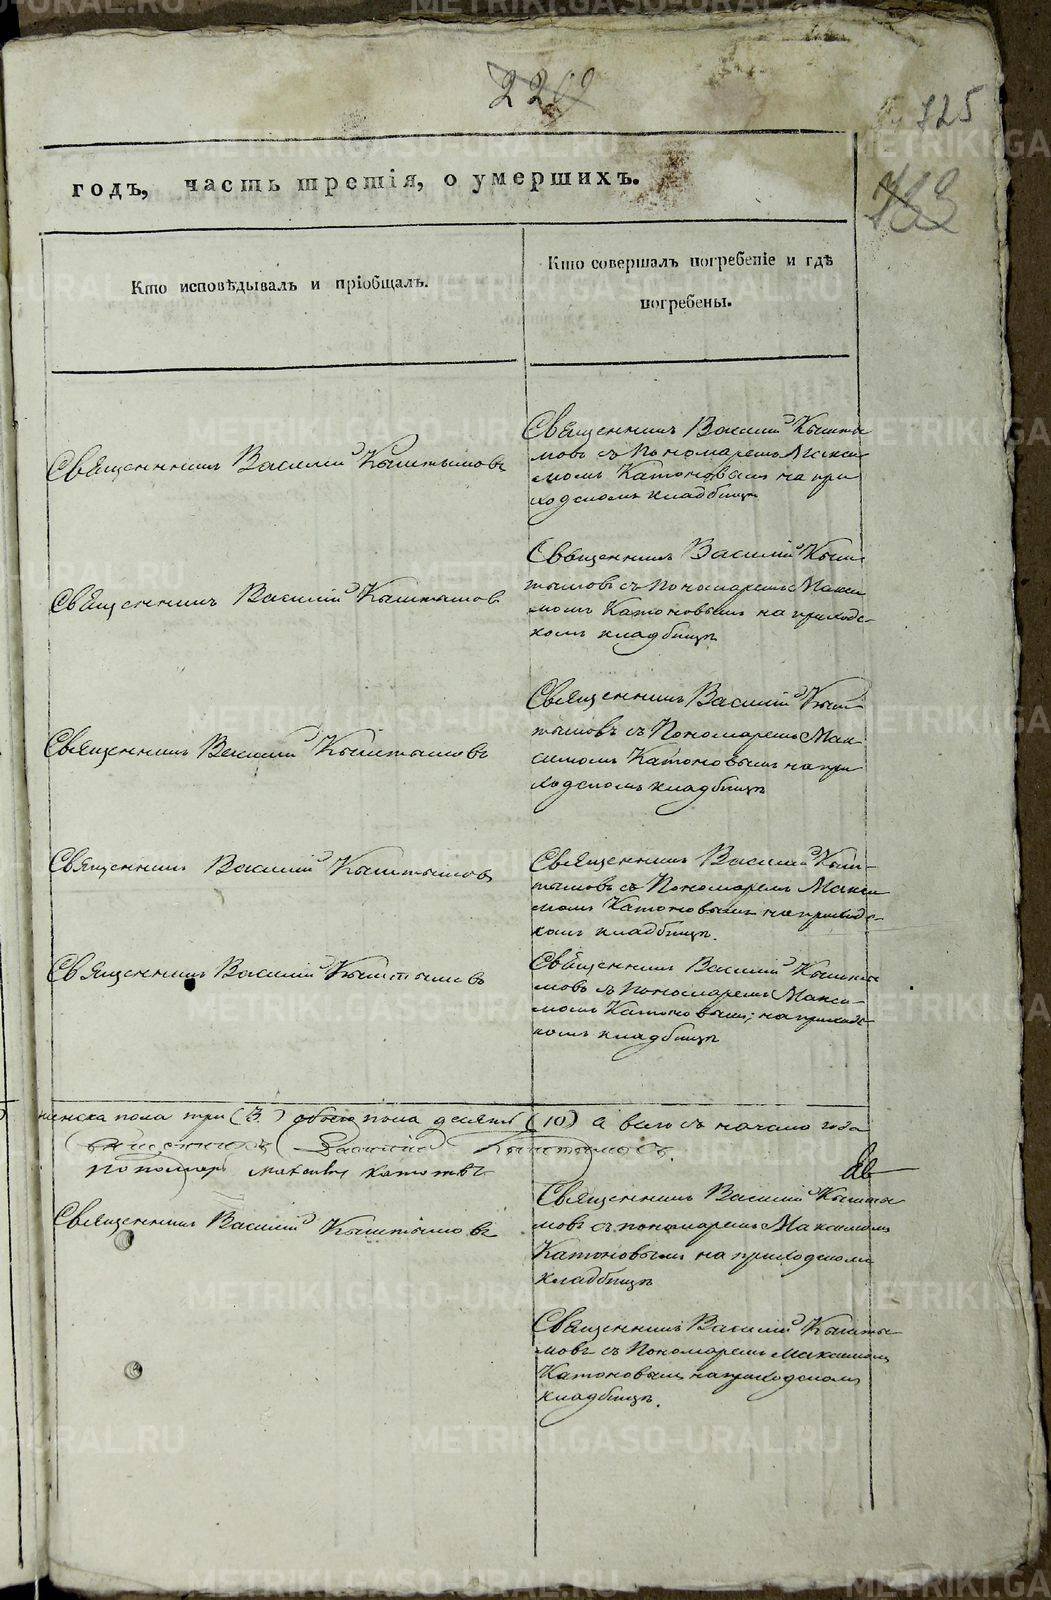 725
годъ, часть третія, о умершихъ.
Кто исповѣдывалъ и пріобщалъ.
Кто совершалъ погребеніе и гдѣ
погребены.
Священникъ Василій Кыштымовъ
Священникъ Василій Кышты
мовъ съ Пономаремъ Макси
момъ Катоновымъ на при
ходскомъ кладбищѣ
Священникъ Василій Кыштымовъ
Священникъ Василій Кыш
тымовъ съ Пономаремъ Макси
момъ Катоновымъ на приходс-
комъ кладбищѣ
Священникъ Василій Кыштымовъ
Священникъ Василій Кыш
тымовъ съ Пономаремъ Мак
симомъ Катоновымъ на при
ходскомъ кладбищѣ
Священникъ Василій Кыштымовъ
Священникъ Василій Кыш-
тымовъ съ Пономаремъ Макси
момъ Катоновымъ на приходс-
комъ кладбищѣ.
Священникъ Василій Кыштымовъ
Священникъ Василій Кышты
мовъ съ Пономаремъ Макси-
момъ Катоновымъ; на приходс-
комъ кладбищѣ
женска пола три (3.) обоего пола десять (10) а всего съ начала года
Священникъ Василій Кыштымовъ.
пономарь Максимъ Катоновъ
Священникъ Василій Кыштымовъ
Священникъ Василій Кышты
мовъ съ пономаремъ Максимомъ
Катоновымъ на приходскомъ
кладбищѣ
Священникъ Василій Кышты
мовъ съ Пономаремъ Максимомъ
Катоновымъ на приходскомъ
кладбищѣ.
METRIKI.GASO-URAL.RU